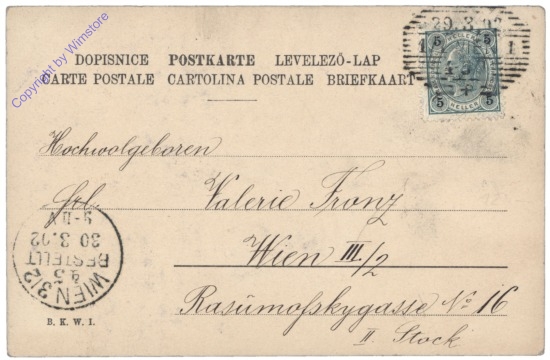 DOPISNICE POSTKARTE LEVELEZŐ-LAP
CARTE POSTALE CARTOLINA POSTALE BRIEFKAART
29.3.02
1 1
5 5
5 HELLER 5
Hochwolgeboren
Frl. Valerie Fronz
Wien III/2
Rasumofskygasse No 16
II. Stock
WIEN 3/2
BESTELLT
30.3.02
B. K. W. I.
Copyright by Wimstore